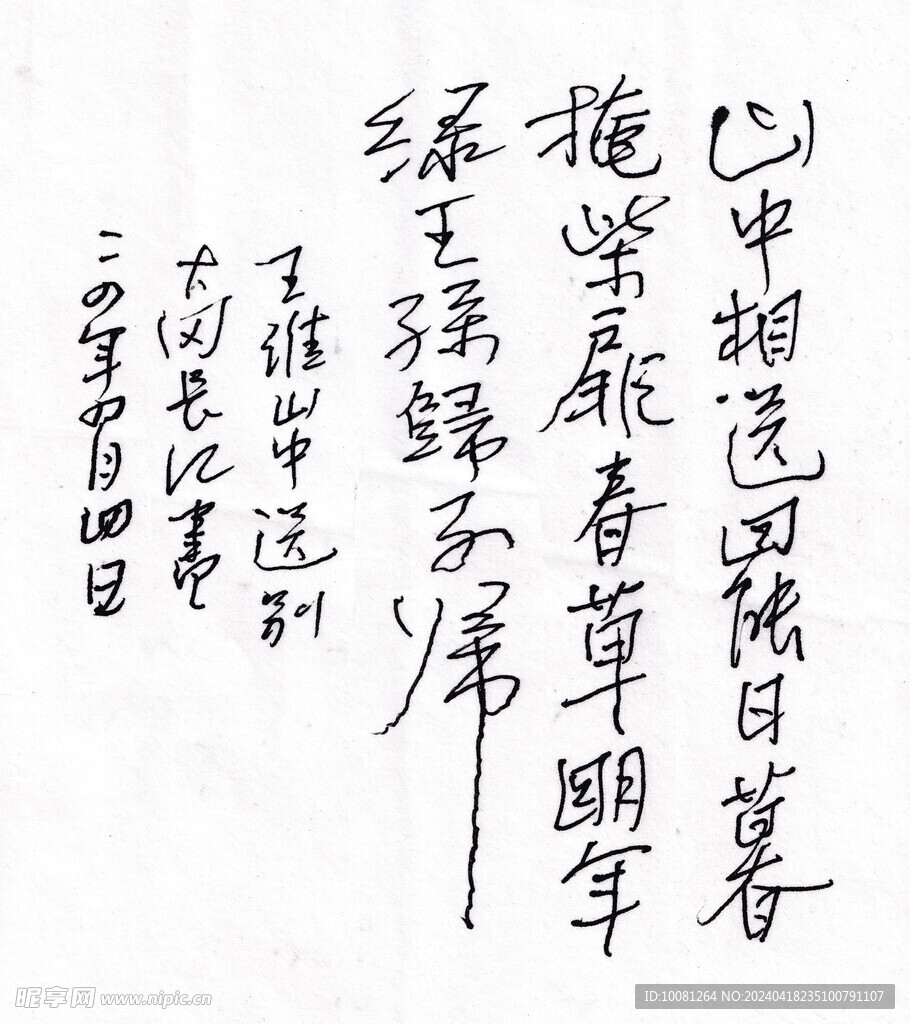 山中相送罷日暮
掩柴扉春草明年
绿王孫歸不帰
王维山中送别
冈长江書
二四年四月四日
昵享网 www.nipic.cn
ID:10081264 NO:20240418235100791107